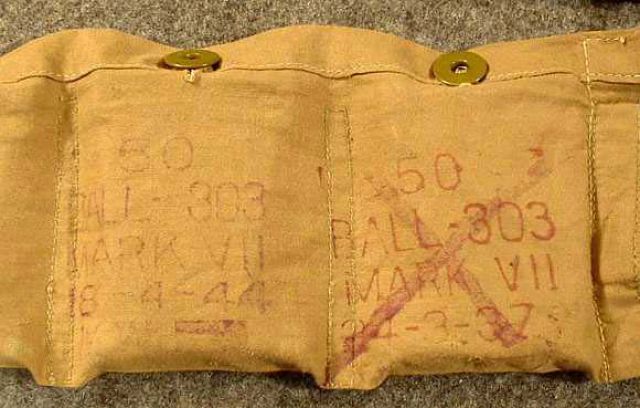 50
BALL-303
MARK VII
18-4-44
50
BALL-303
MARK VII
24-3-37